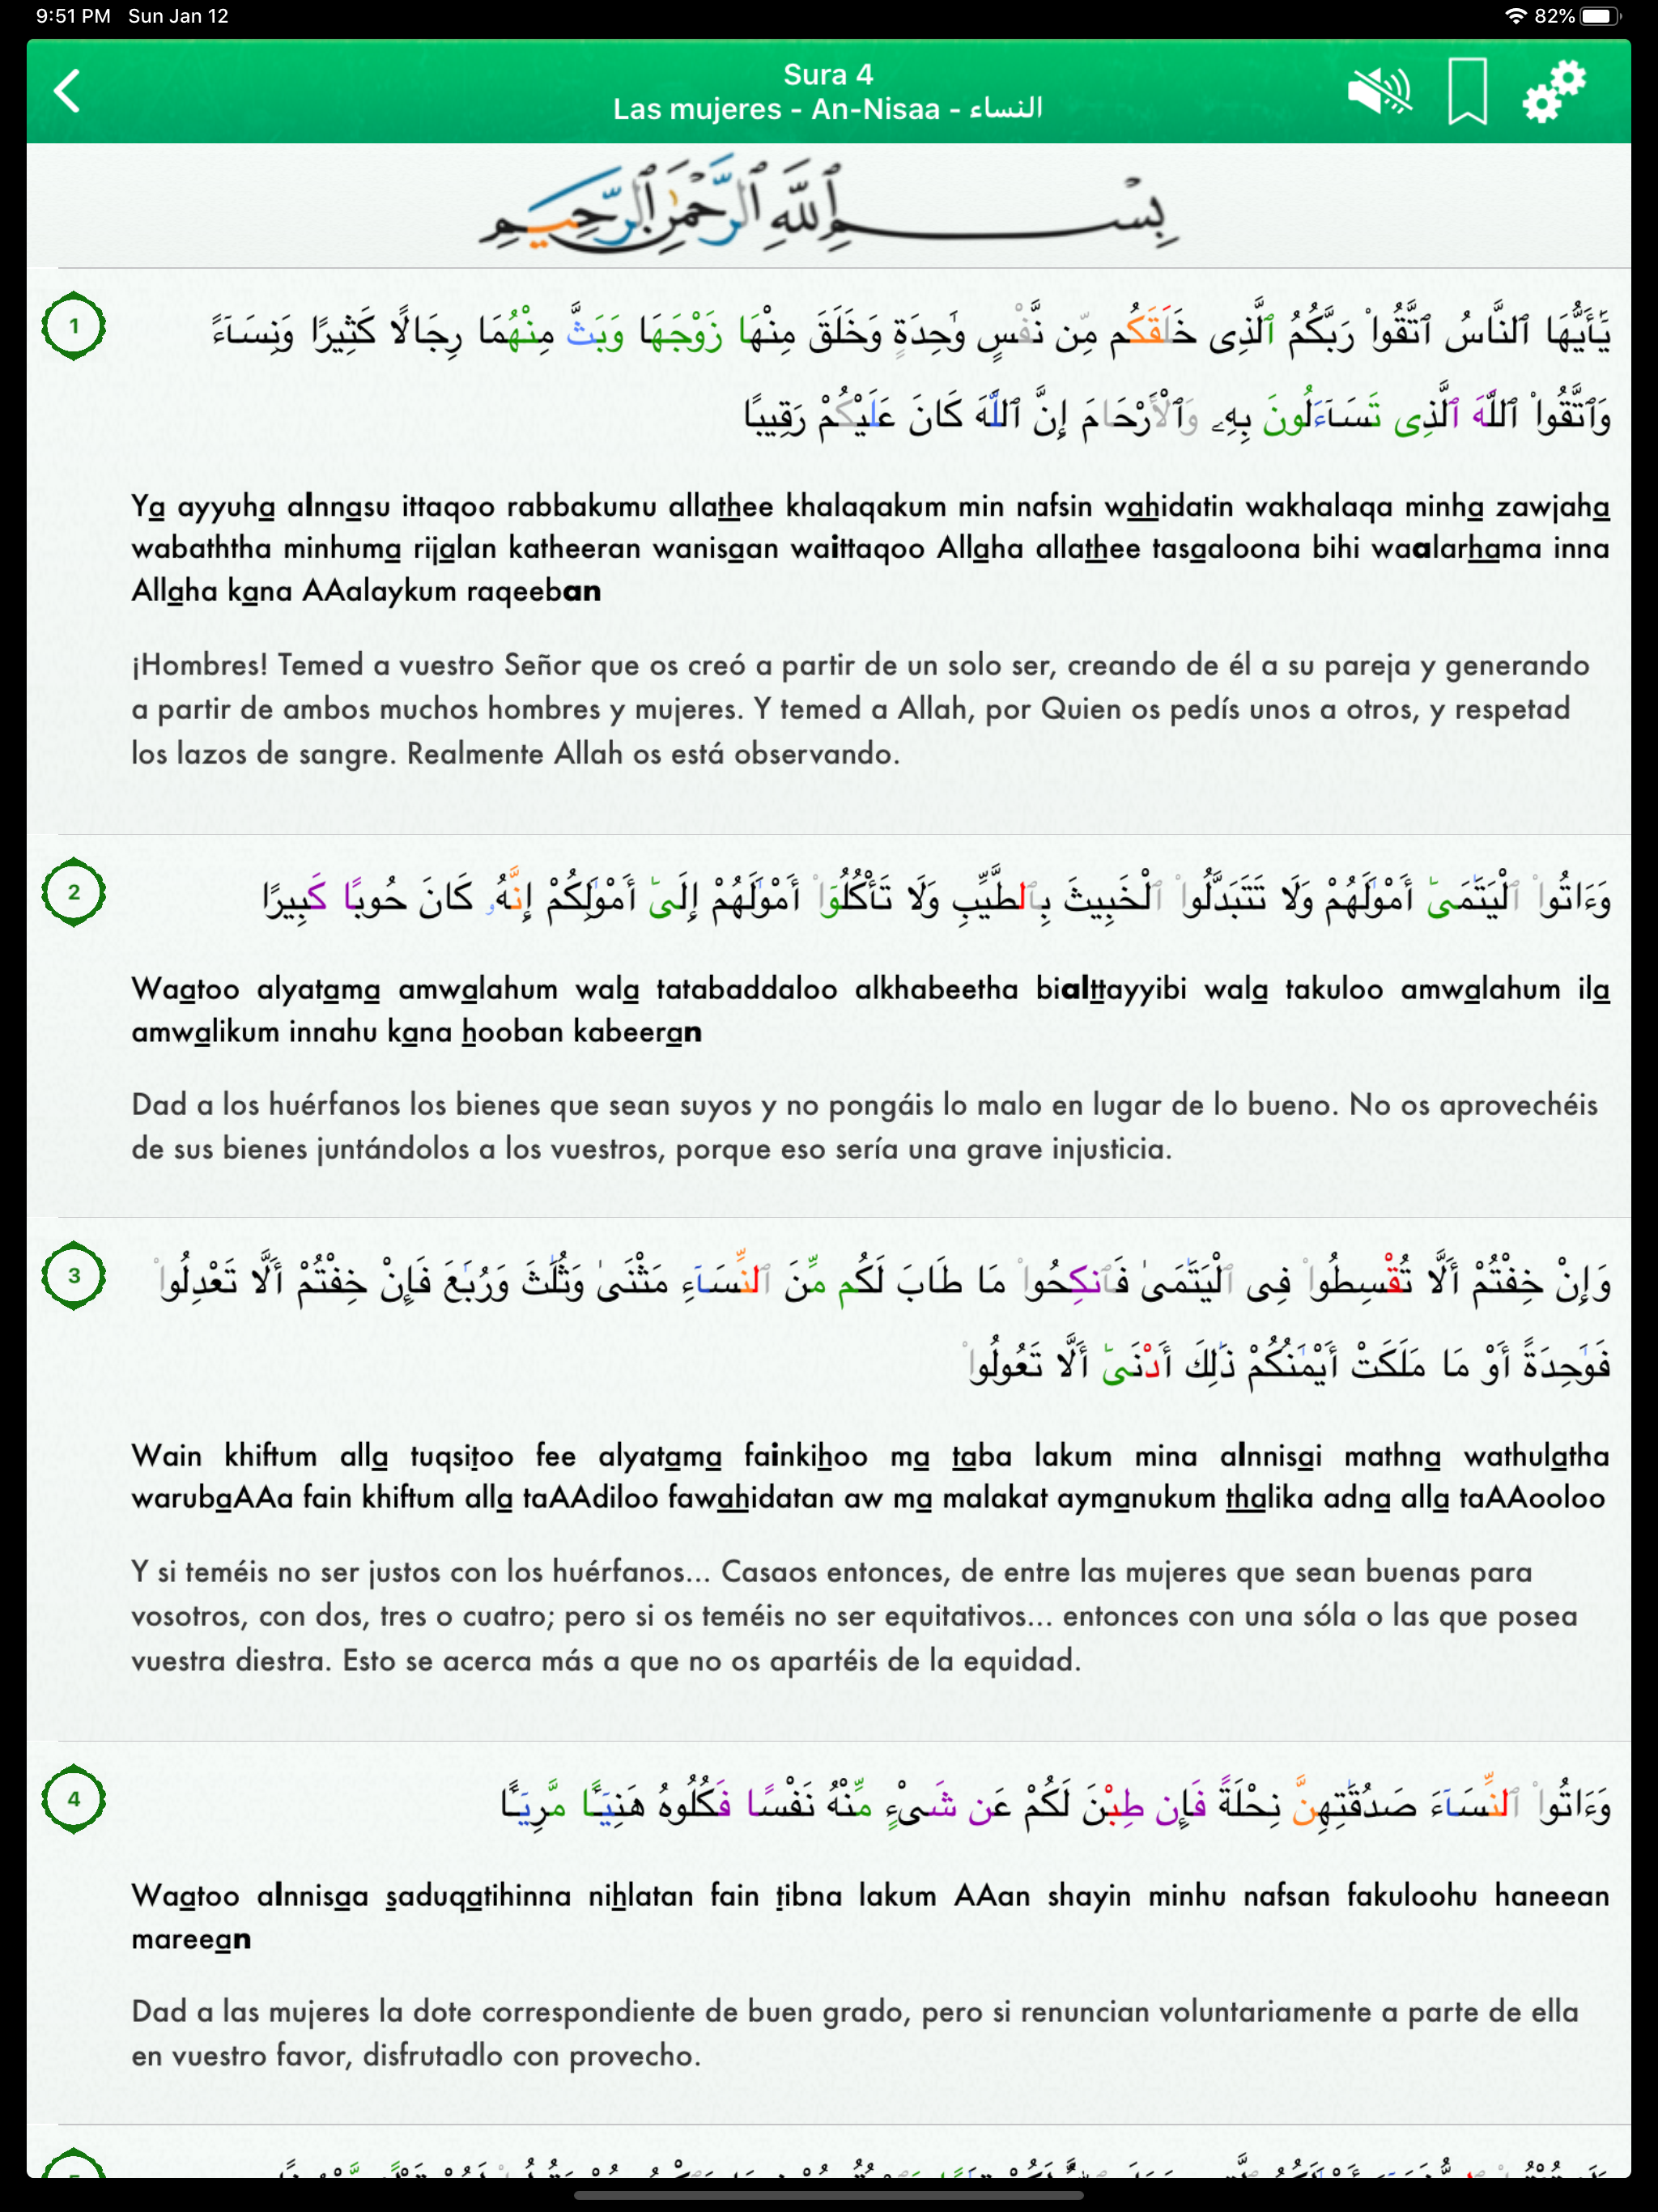 9:51 PM Sun Jan 12
82%
Sura 4
Las mujeres - An-Nisaa - النساء
بِسْمِ ٱللَّهِ ٱلرَّحْمَٰنِ ٱلرَّحِيمِ
1
يَٰٓأَيُّهَا ٱلنَّاسُ ٱتَّقُوا۟ رَبَّكُمُ ٱلَّذِى خَلَقَكُم مِّن نَّفْسٍ وَٰحِدَةٍ وَخَلَقَ مِنْهَا زَوْجَهَا وَبَثَّ مِنْهُمَا رِجَالًا كَثِيرًا وَنِسَآءً
وَٱتَّقُوا۟ ٱللَّهَ ٱلَّذِى تَسَآءَلُونَ بِهِۦ وَٱلْأَرْحَامَ إِنَّ ٱللَّهَ كَانَ عَلَيْكُمْ رَقِيبًا
Ya ayyuha alnnasu ittaqoo rabbakumu allathee khalaqakum min nafsin wahidatin wakhalaqa minha zawjaha
wabaththa minhuma rijalan katheeran wanisaan waittaqoo Allaha allathee tasaaloona bihi waalarhama inna
Allaha kana AAalaykum raqeeban
¡Hombres! Temed a vuestro Señor que os creó a partir de un solo ser, creando de él a su pareja y generando
a partir de ambos muchos hombres y mujeres. Y temed a Allah, por Quien os pedís unos a otros, y respetad
los lazos de sangre. Realmente Allah os está observando.
2
وَءَاتُوا۟ ٱلْيَتَٰمَىٰٓ أَمْوَٰلَهُمْ وَلَا تَتَبَدَّلُوا۟ ٱلْخَبِيثَ بِٱلطَّيِّبِ وَلَا تَأْكُلُوٓا۟ أَمْوَٰلَهُمْ إِلَىٰٓ أَمْوَٰلِكُمْ إِنَّهُۥ كَانَ حُوبًا كَبِيرًا
Waatoo alyatama amwalahum wala tatabaddaloo alkhabeetha bialttayyibi wala takuloo amwalahum ila
amwalikum innahu kana hooban kabeeran
Dad a los huérfanos los bienes que sean suyos y no pongáis lo malo en lugar de lo bueno. No os aprovechéis
de sus bienes juntándolos a los vuestros, porque eso sería una grave injusticia.
3
وَإِنْ خِفْتُمْ أَلَّا تُقْسِطُوا۟ فِى ٱلْيَتَٰمَىٰ فَٱنكِحُوا۟ مَا طَابَ لَكُم مِّنَ ٱلنِّسَآءِ مَثْنَىٰ وَثُلَٰثَ وَرُبَٰعَ فَإِنْ خِفْتُمْ أَلَّا تَعْدِلُوا۟
فَوَٰحِدَةً أَوْ مَا مَلَكَتْ أَيْمَٰنُكُمْ ذَٰلِكَ أَدْنَىٰٓ أَلَّا تَعُولُوا۟
Wain khiftum alla tuqsitoo fee alyatama fainkihoo ma taba lakum mina alnnisai mathna wathulatha
warubaAAa fain khiftum alla taAAdiloo fawahidatan aw ma malakat aymanukum thalika adna alla taAAooloo
Y si teméis no ser justos con los huérfanos... Casaos entonces, de entre las mujeres que sean buenas para
vosotros, con dos, tres o cuatro; pero si os teméis no ser equitativos... entonces con una sóla o las que posea
vuestra diestra. Esto se acerca más a que no os apartéis de la equidad.
4
وَءَاتُوا۟ ٱلنِّسَآءَ صَدُقَٰتِهِنَّ نِحْلَةً فَإِن طِبْنَ لَكُمْ عَن شَىْءٍ مِّنْهُ نَفْسًا فَكُلُوهُ هَنِيٓـًٔا مَّرِيٓـًٔا
Waatoo alnnisaa saduqatihinna nihlatan fain tibna lakum AAan shayin minhu nafsan fakuloohu haneean
mareean
Dad a las mujeres la dote correspondiente de buen grado, pero si renuncian voluntariamente a parte de ella
en vuestro favor, disfrutadlo con provecho.